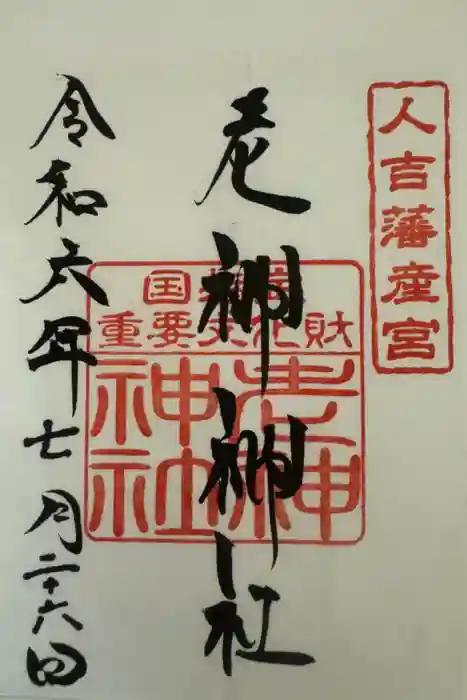 人吉藩産宮
老神神社
国指定
重要文化財
老神
神社
令和六年七月二十六日